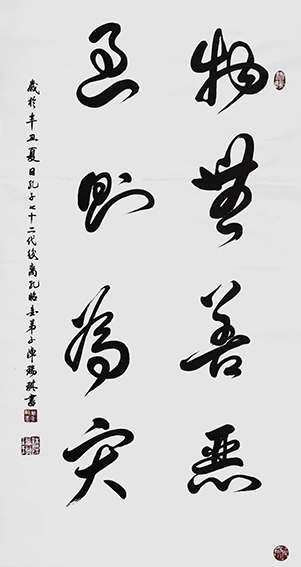 物無善惡
過則為灾
歲於辛丑夏日孔子七十二代後裔孔昭春弟子陳瑞琪書